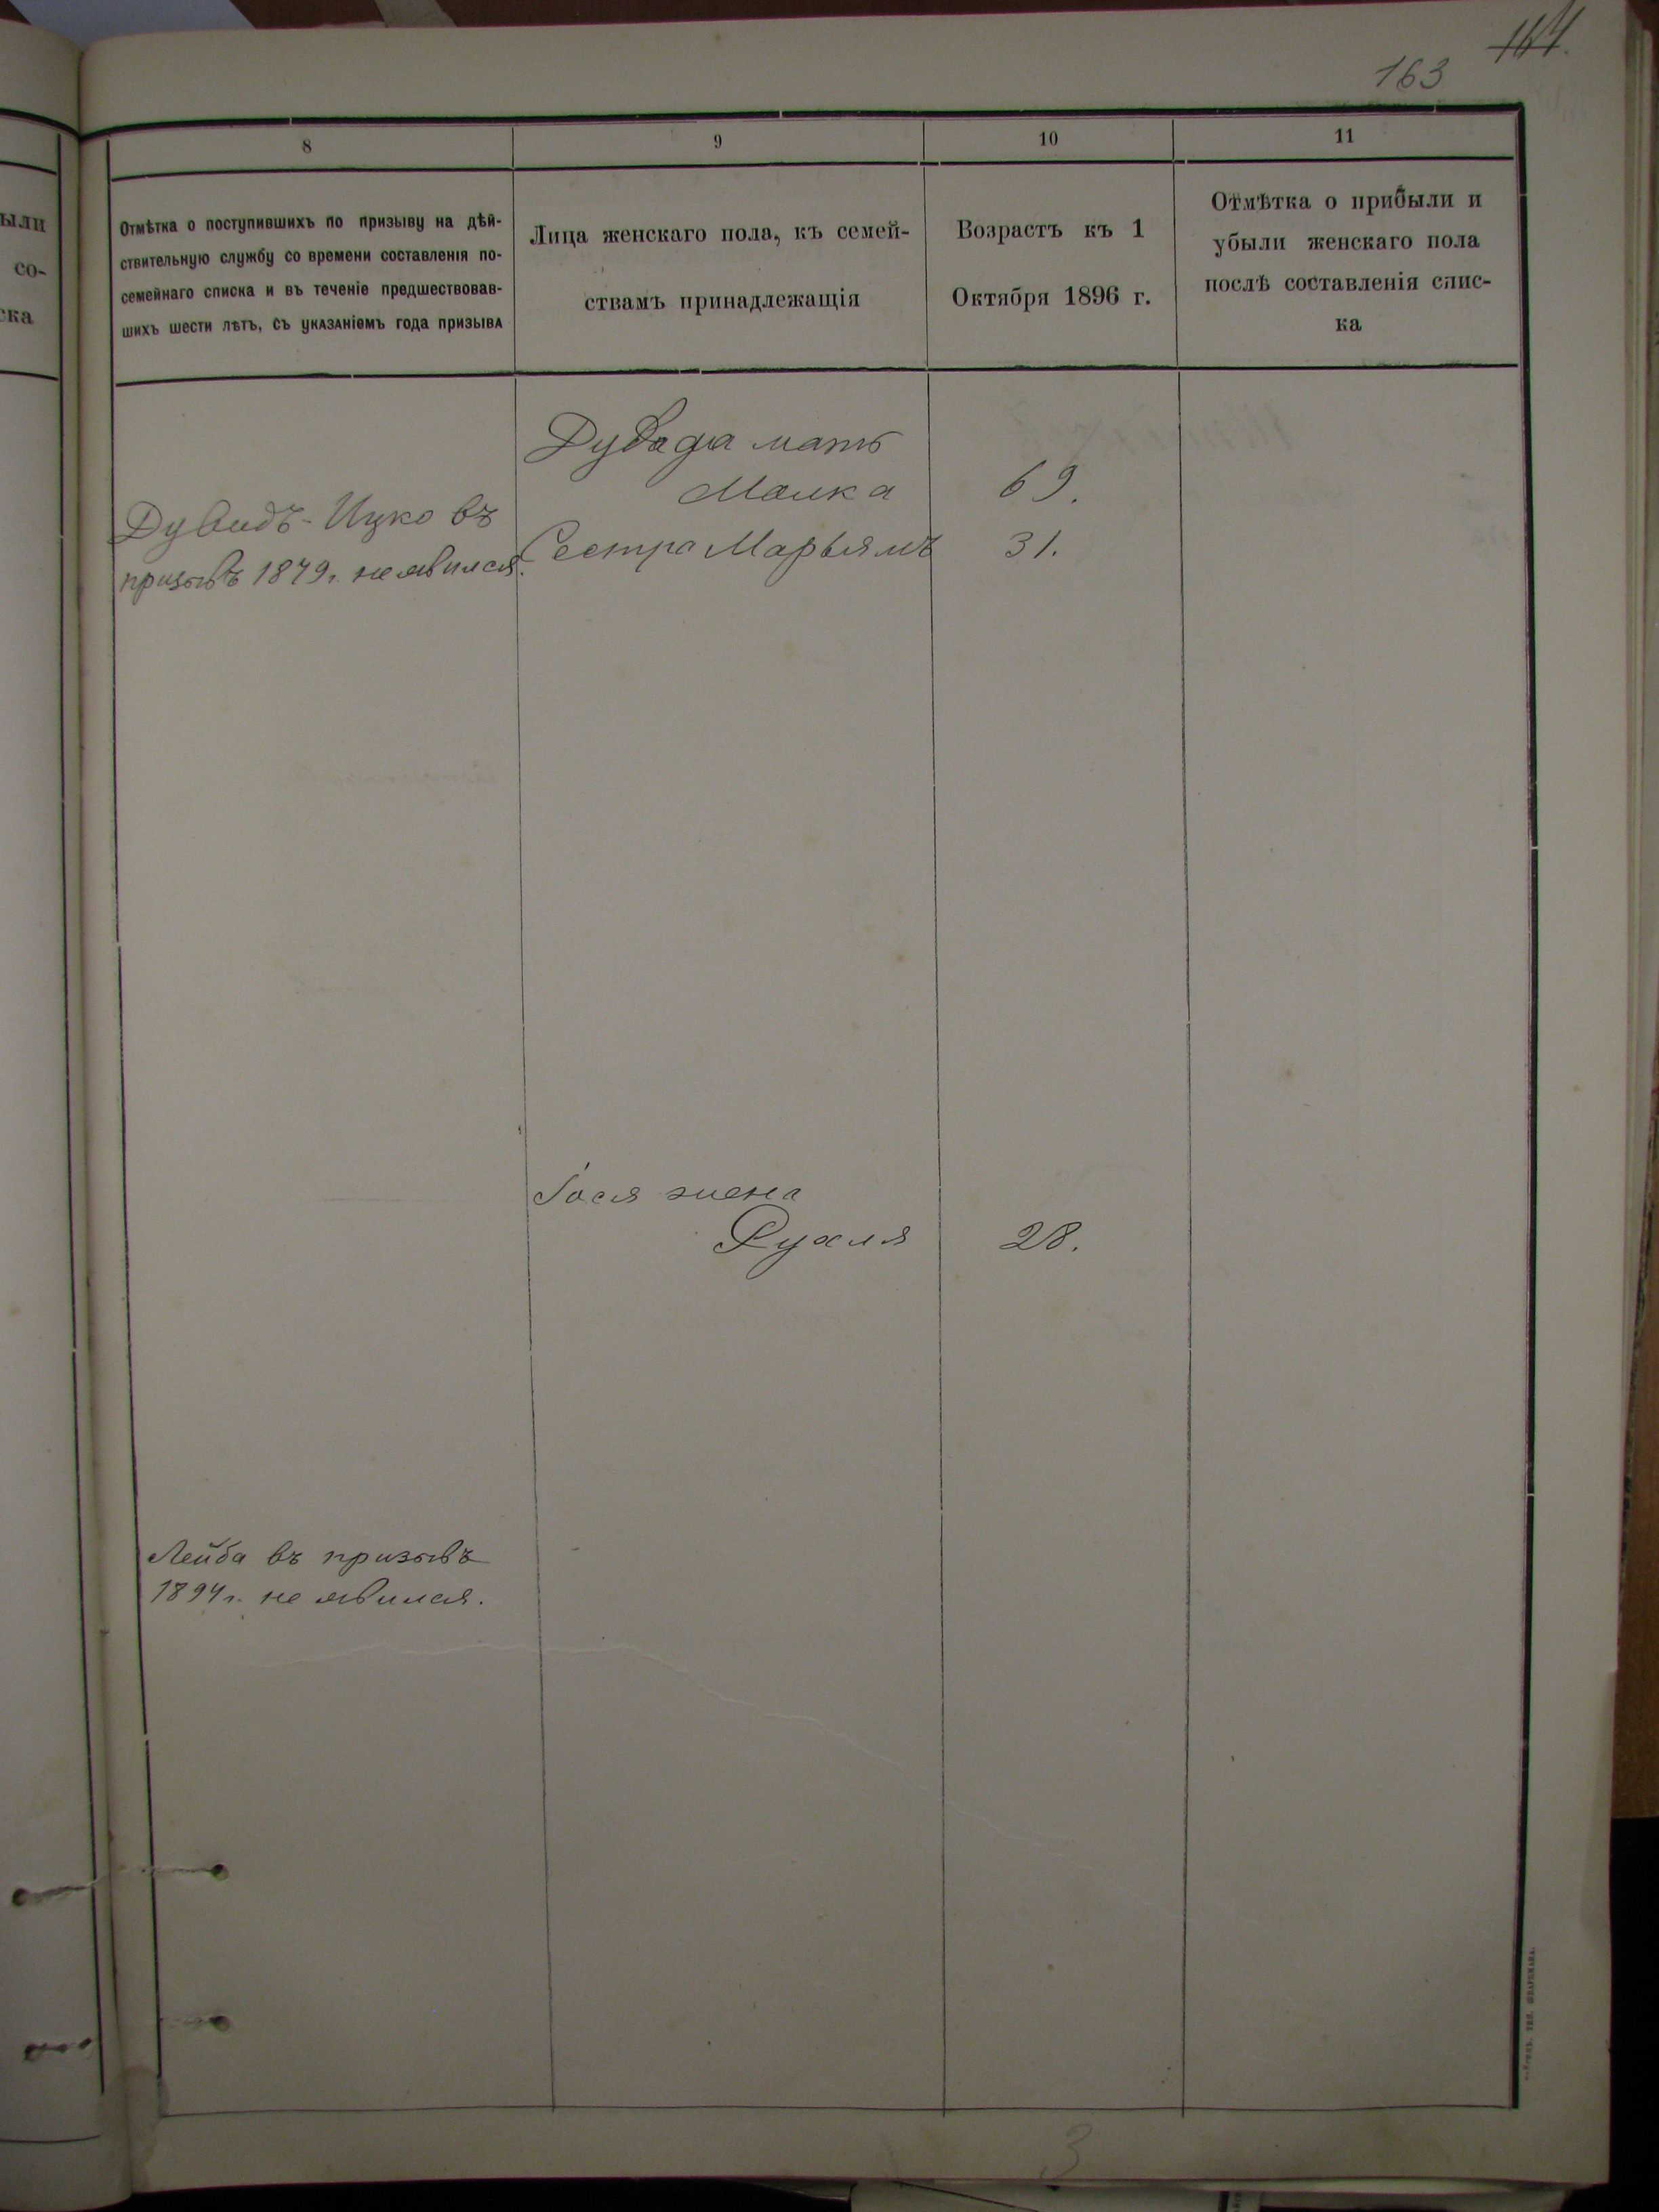 164.
163
ыли
со-
ска
8
9
10
11
Отмѣтка о поступившихъ по призыву на дѣй-
ствительную службу со времени составленія по-
семейнаго списка и въ теченіе предшествовав-
шихъ шести лѣтъ, съ указаніемъ года призыва
Лица женскаго пола, къ семей-
ствамъ принадлежащія
Возрастъ къ 1
Октября 1896 г.
Отмѣтка о прибыли и
убыли женскаго пола
послѣ составленія спис-
ка
Дувидъ-Ицко въ
призывъ 1879 г. не явился.
Дувода мать
Малка 69.
Сестра Марьямъ 31.
Іося жена
Рухля 28.
Лейба въ призывъ
1894 г. не явился.
3